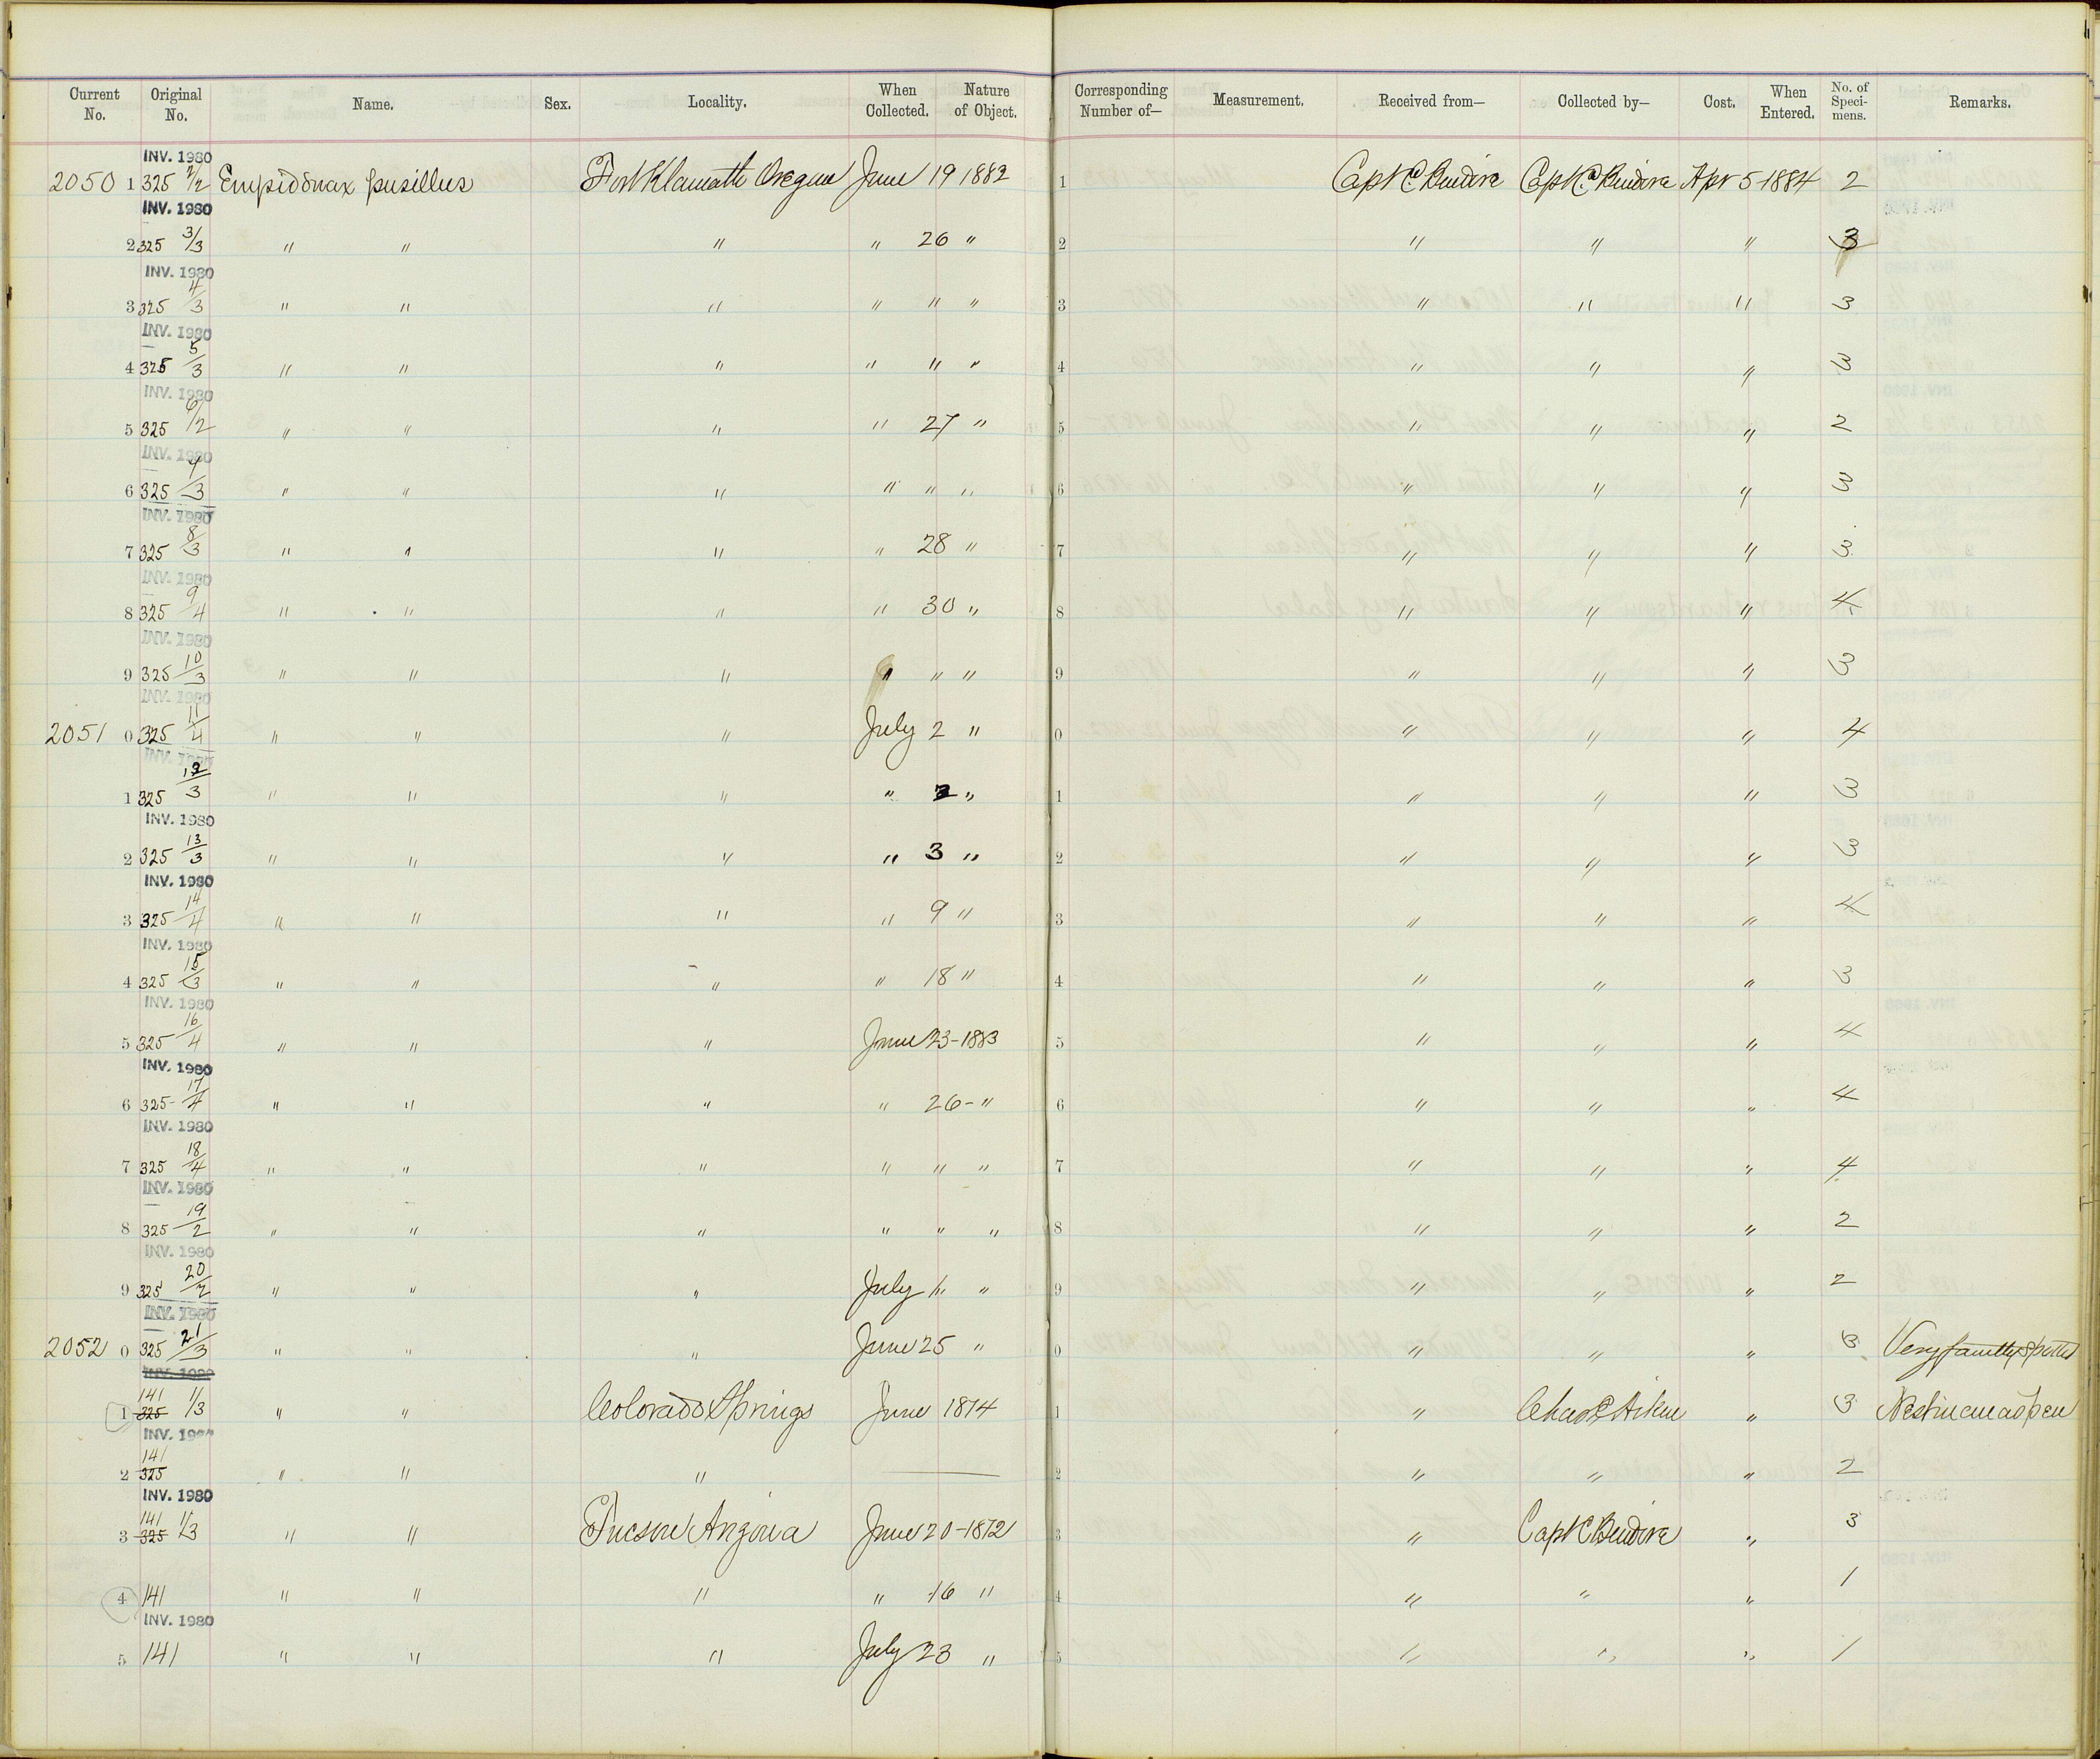 Current No. Original No. Name. Sex. Locality. When Collected. Nature of Object. Corresponding Number of— Measurement. Received from— Collected by— Cost. When Entered. No. of Speci-mens. Remarks.
INV. 1980
2050 1 325 2/2 Empidonax pusillus Fort Klamath Oregon June 19 1882 1 Capt C. Bendire Capt C. Bendire Apr 5-1884 2
INV. 1980
2 325 3/3 " " " " 26 " 2 " " " 3
INV. 1980
3 325 4/3 " " " " " " 3 " " " 3
INV. 1980
4 325 5/3 " " " " " " 4 " " " 3
INV. 1980
5 325 6/2 " " " " 27 " 5 " " " 2
INV. 1980
6 325 7/3 " " " " " " 6 " " " 3
INV. 1980
7 325 8/3 " " " " 28 " 7 " " " 3
INV. 1980
8 325 9/4 " " " " 30 " 8 " " " 4
INV. 1980
9 325 10/3 " " " " " " 9 " " " 3
INV. 1980
2051 0 325 11/4 " " " July 2 " 0 " " " 4
INV. 1980
1 325 12/3 " " " " " 1 " " " 3
INV. 1980
2 325 13/3 " " " " 3 " 2 " " " 3
INV. 1980
3 325 14/4 " " " " 9 " 3 " " " 4
INV. 1980
4 325 15/3 " " " " 18 " 4 " " " 3
INV. 1980
5 325 16/4 " " " June 23-1883 5 " " " 4
INV. 1980
6 325- 17/4 " " " " 26- " 6 " " " 4
INV. 1980
7 325 18/4 " " " " " " 7 " " " 4
INV. 1980
8 325 19/2 " " " " " " 8 " " " 2
INV. 1980
9 325 20/2 " " " July 1 " 9 " " " 2
INV. 1980
2052 0 325 21/3 " " " June 25 " 0 " " " 3 Very faintly spotted
INV. 1980
1 141 325 1/3 " " Colorado Springs June 1874 1 " Chas E Aiken " 3 Nest in an aspen
INV. 1980
2 141 325 " " " — 2 " " " 2
INV. 1980
3 141 325 1/3 " " Tucson Arizona June 20-1872 3 " Capt C Bendire " 3
4 141 " " " " 16 " 4 " " " 1
INV. 1980
5 141 " " " July 23 " 5 " " " 1